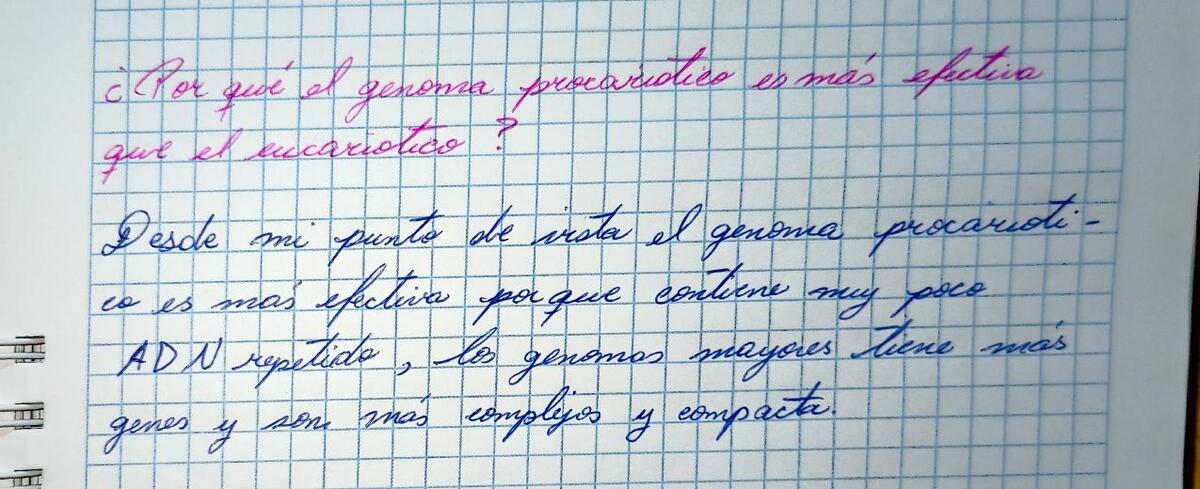 ¿Por qué el genoma procariotico es más efectiva
que el eucariotico?
Desde mi punto de vista el genoma procarioti-
co es más efectiva porque contiene muy poco
ADN repetido, los genomas mayores tiene más
genes y son más complejos y compacta.